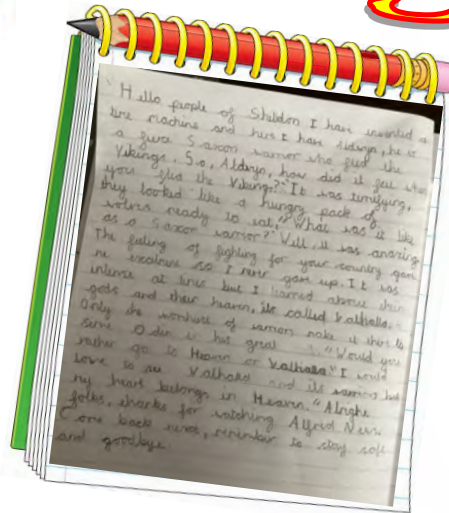 "Hello people of Shildon I have invented a
time machine and here I have Aldwyn, he is
a Saxon warrior who the
Vikings. So, Aldwyn, how did it feel when
you the Vikings?" It was terrifying,
they looked like a hungry pack of
wolves ready to eat." What was it like
as a Saxon warrior?" Well, it was amazing
The feeling of fighting for your country gave
me so I never gave up. It was
intense at times but I learned about their
gods and their heaven, its called Valhalla.
Only the of make it there to
serve Odin in his great "Would you
rather go to Heaven or Valhalla" I would
love to see Valhalla and its but
my heart belongs in Heaven." Alright
folks, thanks for watching Alfred News
Come back next, remember to stay safe
and goodbye